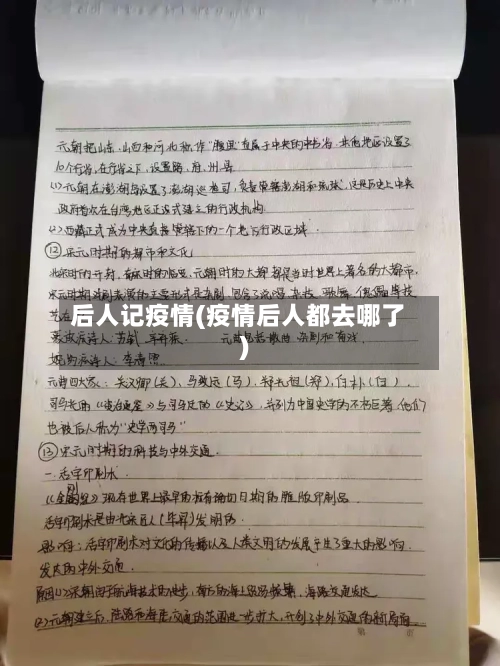 元朝把山东、山西和河北称作"腹里"直属于中央的中书省,
10个行省,在行省之下,设置路、府、州、县
(1)元朝在澎湖岛设置了澎湖巡检司,负责管辖澎湖和琉球,这是历史上中央
政府首次在台湾地区正式建立的行政机构.
(2)西藏正式成为中央直接管辖下的一个地方行政区域.
⑫宋元时期的都市和文化
北宋时的开封,南宋时的临安,元朝时的大都都是当时世界上著名的大都市,
宋元时期戏剧表演的主要形式是杂剧,包含了说唱、杂技、歌舞、傀儡
后人记疫情(疫情后人都去哪了
)
豪放派诗人:苏轼、辛弃疾. 元曲包括散曲、杂剧和
婉约派诗人:李清照
元曲四大家:关汉卿(关)、马致远(马)、郑光祖(郑)、白朴(白).
司马光的《资治通鉴》与司马迁的《史记》,并列为中国史学的不朽巨著,他们
也被后人称为"史学两司马"
⑬宋元时期的科技与中外交通.
一.活字印刷术
《金刚经》现存世界上最早的标有确切日期的雕版印刷品.
活字印刷术是由北宋匠人(毕昇)发明的.
影响:活字印刷术对文化的传播以及人类文明的发展产生了重大的影响.
发达的中外交通.
原因(1)宋朝由于航海技术的进步,南方的海上贸易频繁,海路交通发达
(2)元朝建立后,陆路和海路交通的范围进一步扩大,开创了中外交通的新局面.
第 页